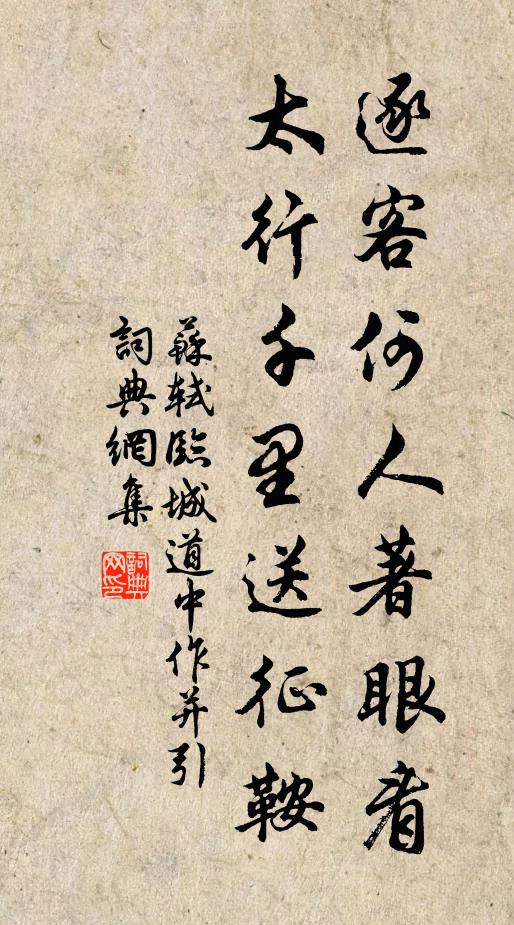 逐客何人著眼看
太行千里送征鞍
蘇軾臨城道中作并引
詞典網集
詞典
网印